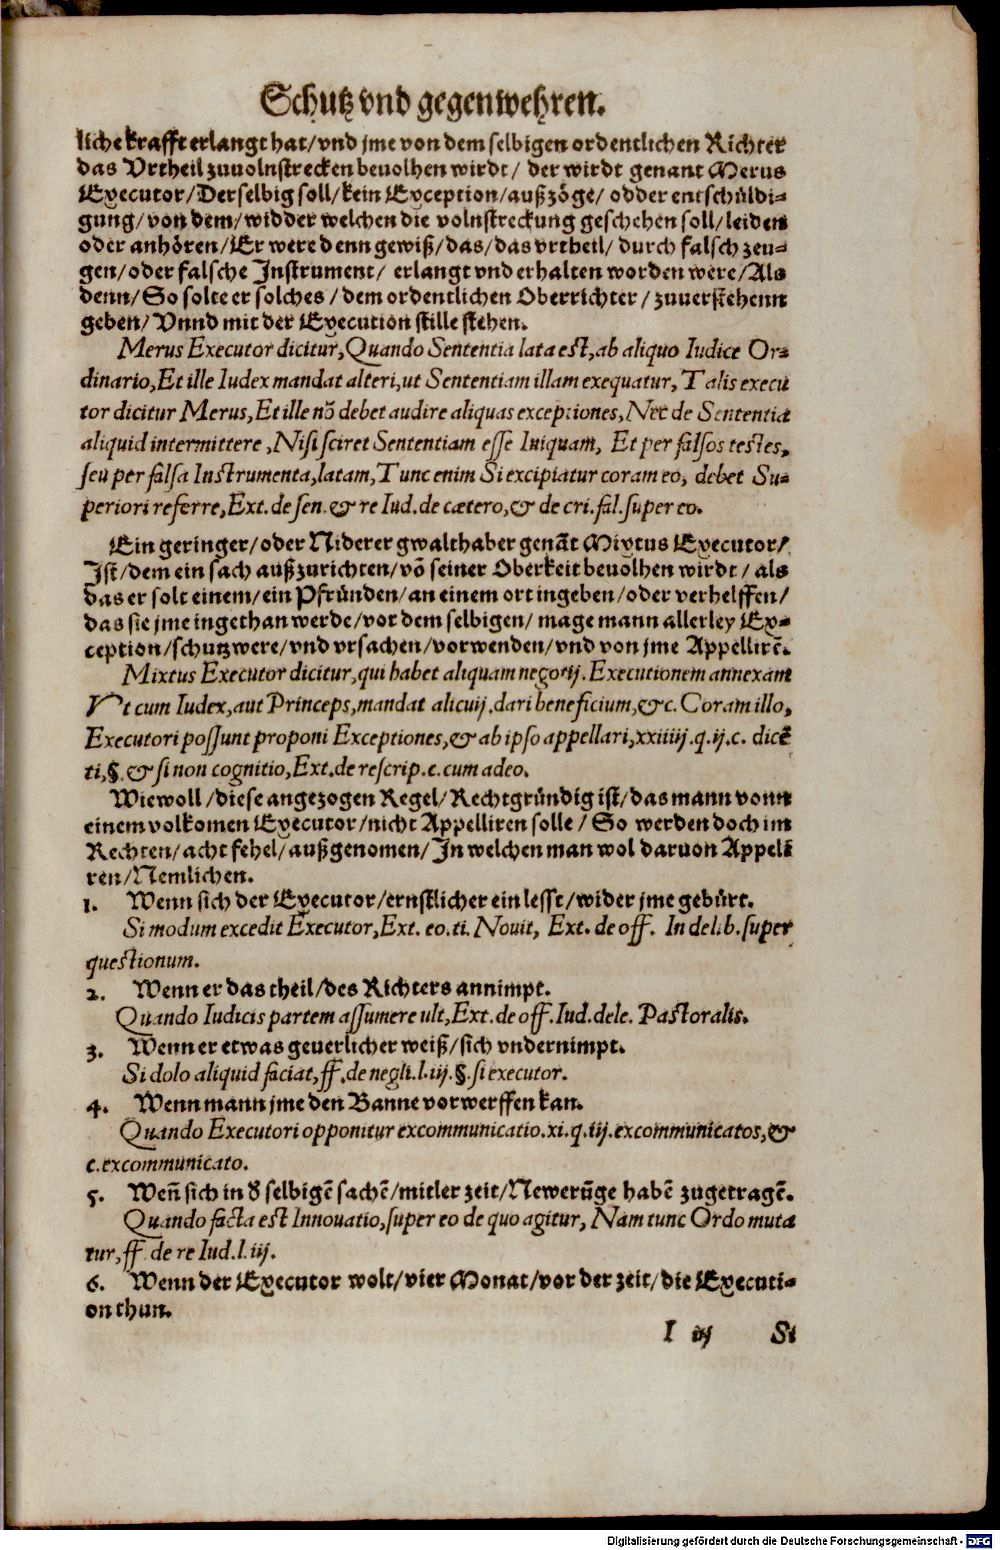 Schutz vnd gegenwehren.
liche krafft erlangt hat/vnd jme von dem selbigen ordentlichen Richter
das Vrtheil zuuolnstrecken beuolhen wirdt/ der wirdt genant Merus
Executor/Derselbig soll/kein Exception/außzöge/ odder entschüldi-
gung/von dem/widder welchen die volnstreckung geschehen soll/leiden
oder anhören/Er were denn gewiß/das/das vrtheil/ durch falsch zeu-
gen/oder falsche Instrument/ erlangt vnd erhalten worden were/Als
denn/So solte er solches /dem ordentlichen Oberrichter / zuuerstehenn
geben/Vnnd mit der Execution stille stehen.
Merus Executor dicitur, Quando Sententia lata est, ab aliquo Iudice Or-
dinario, Et ille Iudex mandat alteri, ut Sententiam illam exequatur, Talis execu
tor dicitur Merus, Et ille nõ debet audire aliquas exceptiones, Nec de Sententia
aliquid intermittere, Nisi sciret Sententiam esse Iniquam, Et per falsos testes,
seu per falsa Instrumenta, latam, Tunc enim Si excipiatur coram eo, debet Su-
periori referre, Ext. de sen. & re Iud. de cætero, & de cri. fal. super eo.
Ein geringer/oder Niderer gwalthaber genãt Mixtus Executor/
Ist/dem ein sach außzurichten/võ seiner Oberkeit beuolhen wirdt/ als
das er solt einem/ein Pfründen/an einem ort ingeben/oder verhelffen/
das sie jme ingethan werde/vor dem selbigen/ mage mann allerley Ex-
ception/schutzwere/vnd vrsachen/vorwenden/vnd von jme Appellirẽ.
Mixtus Executor dicitur, qui habet aliquam negotij. Executionem annexam
Vt cum Iudex, aut Princeps, mandat alicuij, dari beneficium, &c. Coram illo,
Executori possunt proponi Exceptiones, & ab ipso appellari, xxiiiij. q. ij. c. dicẽ
ti, §. & si non cognitio, Ext. de rescrip. c. cum adeo.
Wiewoll /diese angezogen Regel/Rechtgründig ist/das mann vonn
einem volkomen Executor/nicht Appelliren solle / So werden doch im
Rechten/acht fehel/außgenomen/In welchen man wol daruon Appelli
ren/Nemlichen.
1. Wenn sich der Executor/ernstlicher ein lesst/wider jme gebürt.
Si modum excedit Executor, Ext. eo. ti. Nouit, Ext. de off. In delib. super
questionum.
2. Wenn er das theil/des Richters annimpt.
Quando Iudicis partem assumere ult, Ext. de off. Iud. dele. Pastoralis.
3. Wenn er etwas geuerlicher weiß/sich vndernimpt.
Si dolo aliquid faciat, ff. de negli. l. iij. §. si executor.
4. Wenn mann jme den Banne vorwerffen kan.
Quando Executori opponitur excommunicatio. xi. q. iij. excommunicatos, &
c. excommunicato.
5. Weñ sich in d selbigẽ sachẽ/mitler zeit/Newerũge habẽ zugetragẽ.
Quando facta est Innouatio, super eo de quo agitur, Nam tunc Ordo muta
tur, ff. de re Iud. l. iij.
6. Wenn der Executor wolt/vier Monat/vor der zeit/die Executi-
on thun.
I iij Si
Digitalisierung gefördert durch die Deutsche Forschungsgemeinschaft - DFG